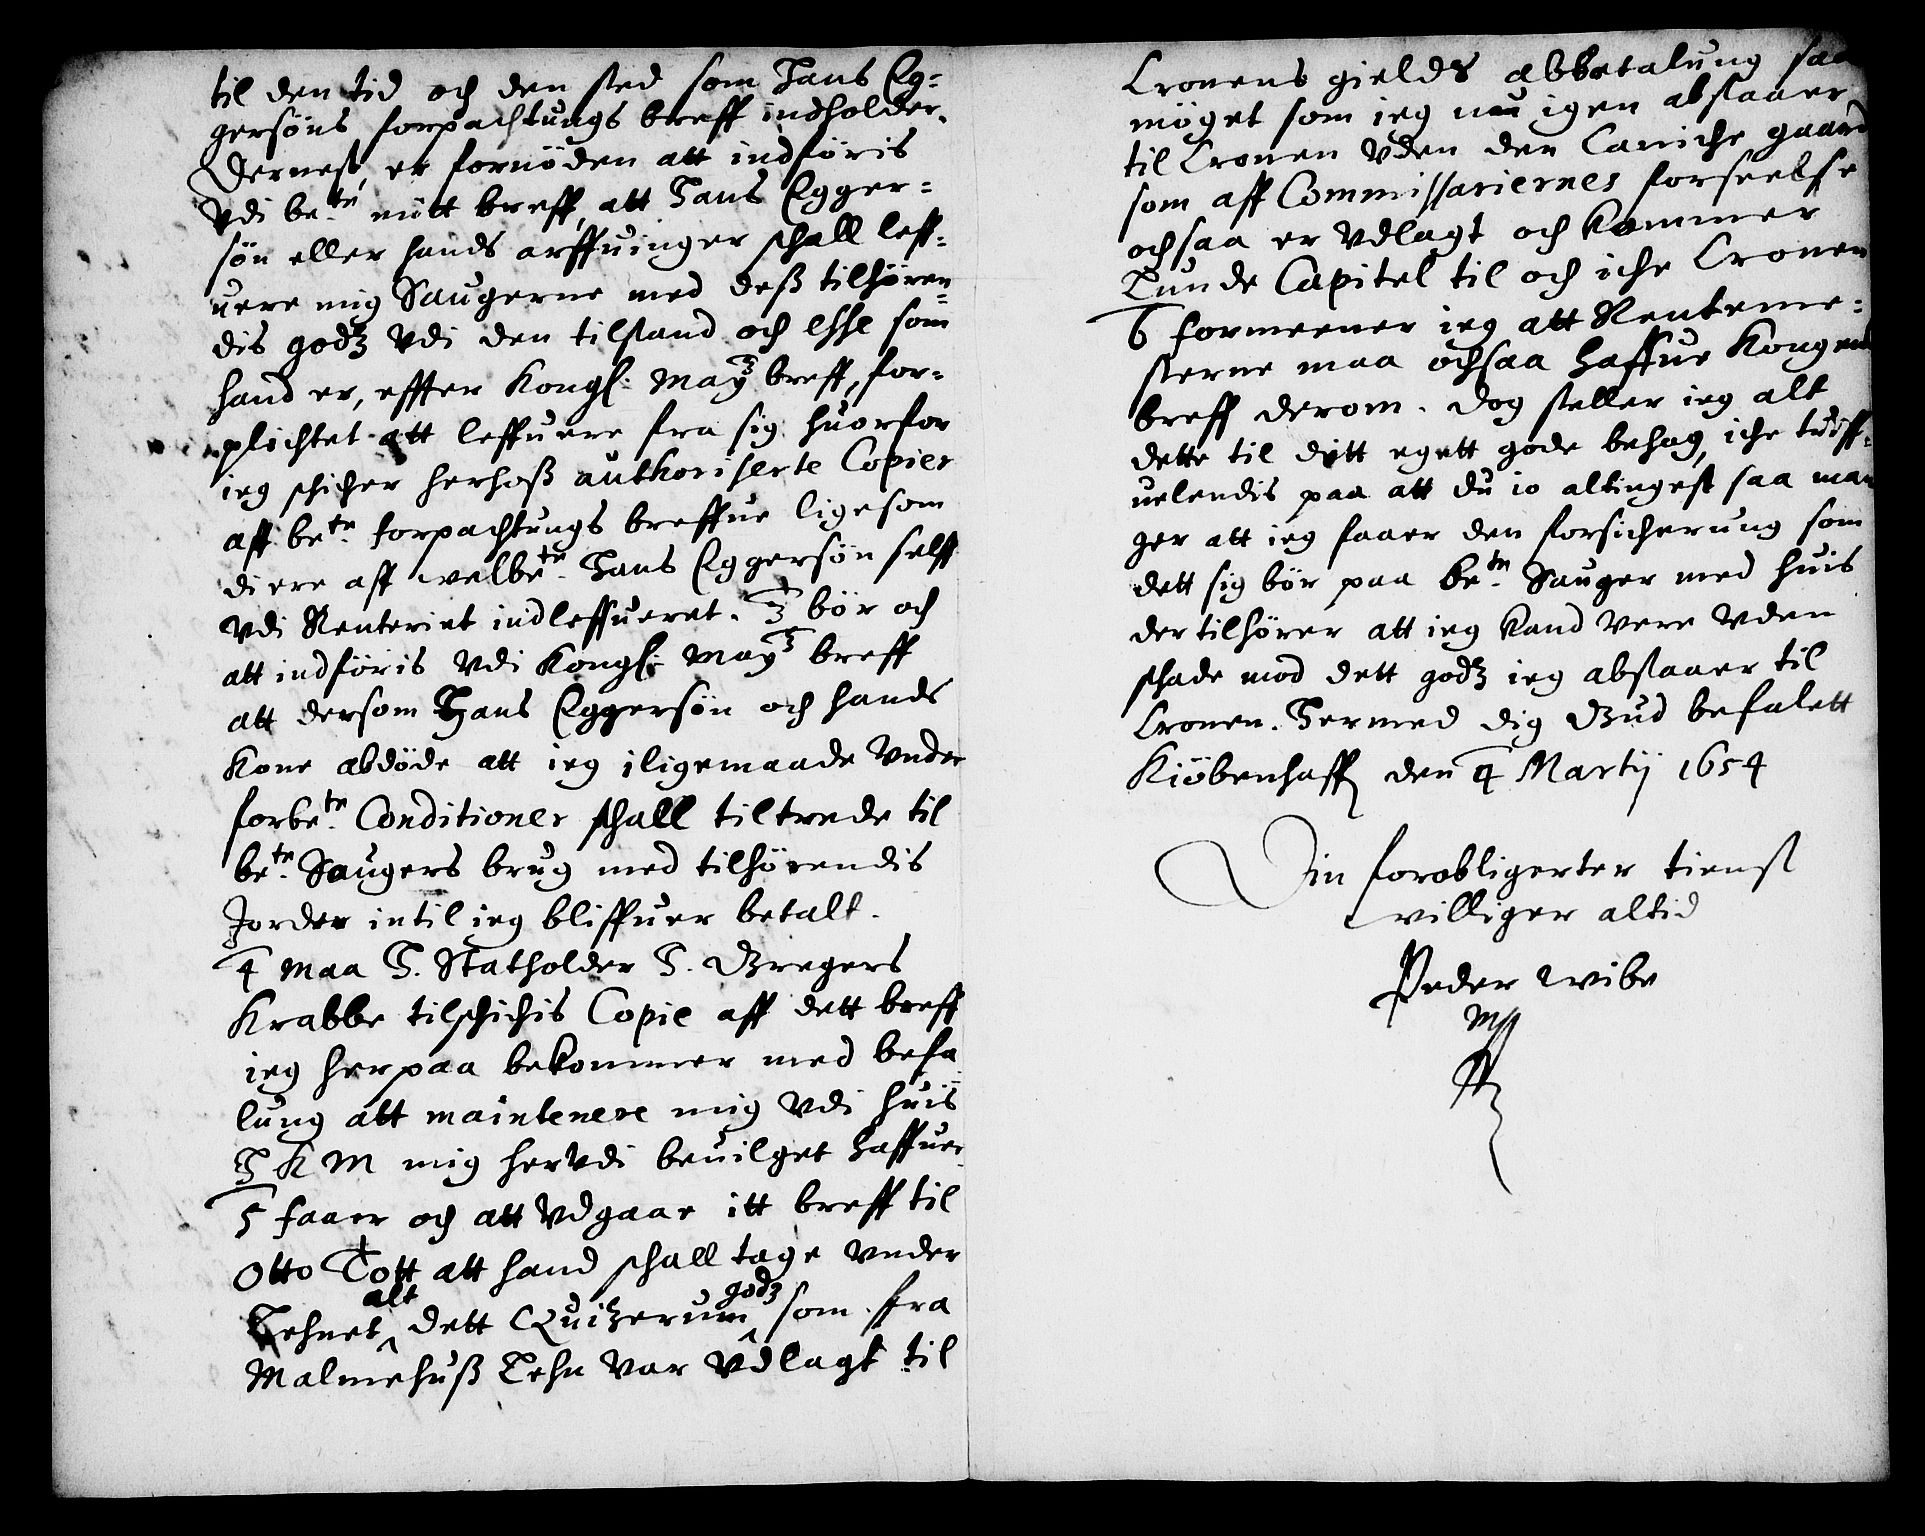 til den tid och den sted som Hans Eg-
gersöns forpachtungs breff indholder.
Dernest er fornöden att indföris
Vdi be:te nütt breff, att Hans Egger-
sön eller hands arffuinger schall leff-
uere mig Saugerne med deß tilhören-
dis godtz Vdi den tilstand och esse som
hand er, effter Kongl: Maytz breff, for-
plichtet att leffuere fra sig huorfor
ieg schicher herhoß authoriserte Copier
aff be:te forpachtungs breffue ligesom
di ere aff welbe:te Hans Eggersön self
Vdi Renteriet indleffueret. 3 bör och
att indföris Vdi Kongl: Maytz breff
att dersom Hans Eggersön och hands
Kone abdöde att ieg iligemaade Vnder
forbe:te Conditioner schall tiltrede til
be:te Saugers brug med tilhörendis
Jorder intil ieg bliffuer betalt.
4 maa H. Statholder H. Gregers
Krabbe tilschichis Copie aff dett breff
ieg herpaa bekommer med befa
lung att maintenere mig Vdi huis
H K M mig herVdi beuilget haffuer
5 faaer och att Vdgaae itt breff til
Otto Tott att hand schall tage Vnder
Lehnet alt dett Quitzerum godtz som fra
Malmehuß Lehn Var Vdlagt til
Cronens gields abbetalung saa
möget som ieg nu igen abstaaer
til Cronen Vden den Caniche gaard
som aff Commissariernes forseelse
ochsaa er Vdlagt och kommer
Lunde Capitel til och iche Cronen
6 formeener ieg att Renteme-
sterne maa ochsaa haffue Kongens
breff derom. Dog steller ieg alt
dette til ditt egett gode behag, iche tuiff-
uelendis paa att du io altingest saa ma
ger att ieg faaer den forsicherung som
dett sig bör paa be:te Sauger med huis
der tilhörer att ieg kand Vere Vden
schade mod dett godtz ieg abstaaer til
Cronen. Hermed dig Gud befalett
Kiöbenhaffn den 4 Martij 1654
Din forobligerter tienst
villiger altid
Peder Wibe
Mpp